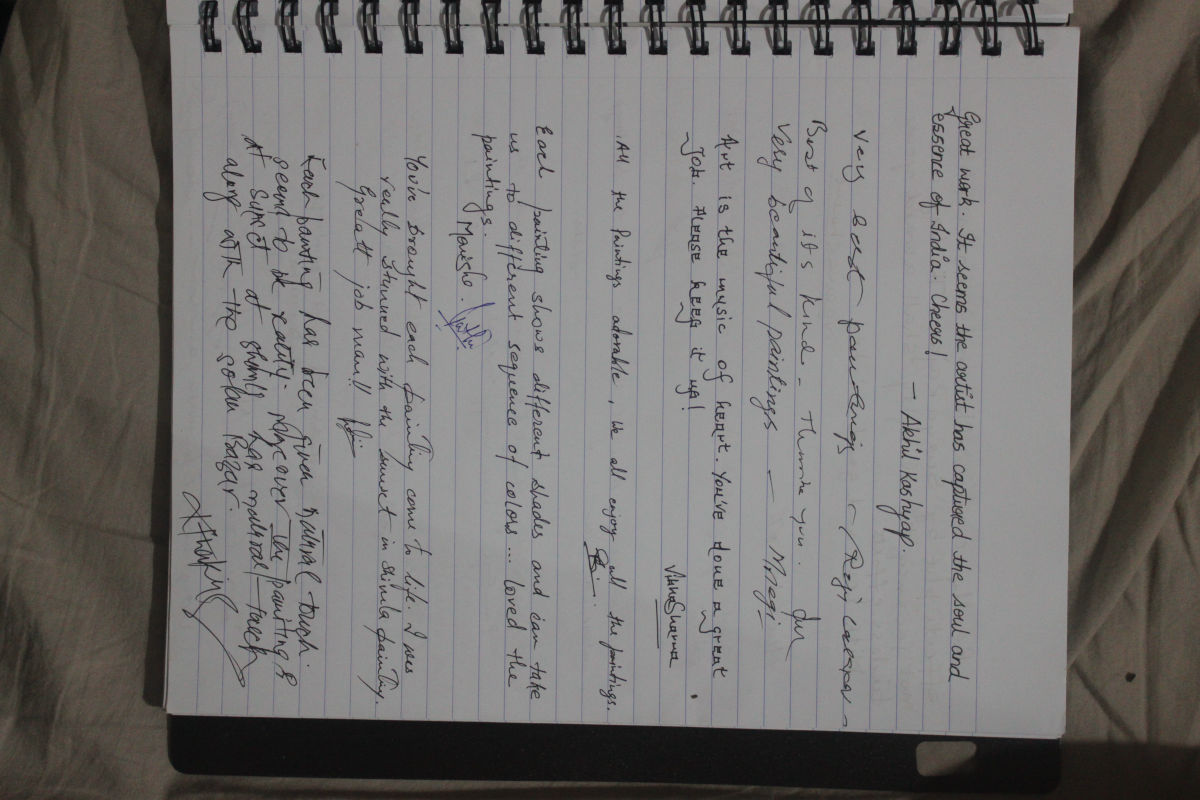 Great work. It seems the artist has captured the soul and
essence of India. Cheers!
- Akhil Kashyap.
Very best paintings -
Best of its kind - Thank you.
Very beautiful paintings - Negi
Art is the music of heart. You've done a great
job. Please keep it up!
Sharma
All the Paintings adorable, we all enjoy all the paintings.
Each painting shows different shades and can take
us to different sequence of colors... loved the
paintings.
Manisha.
You've brought each painting come to life. I was
really stunned with the sunset in shimla painting.
Greatt job man!!
Each painting has been given natural touch.
seems to be reality. Moreover the paintings
at sunset at shimla has natural touch
along with the solan Bazar.